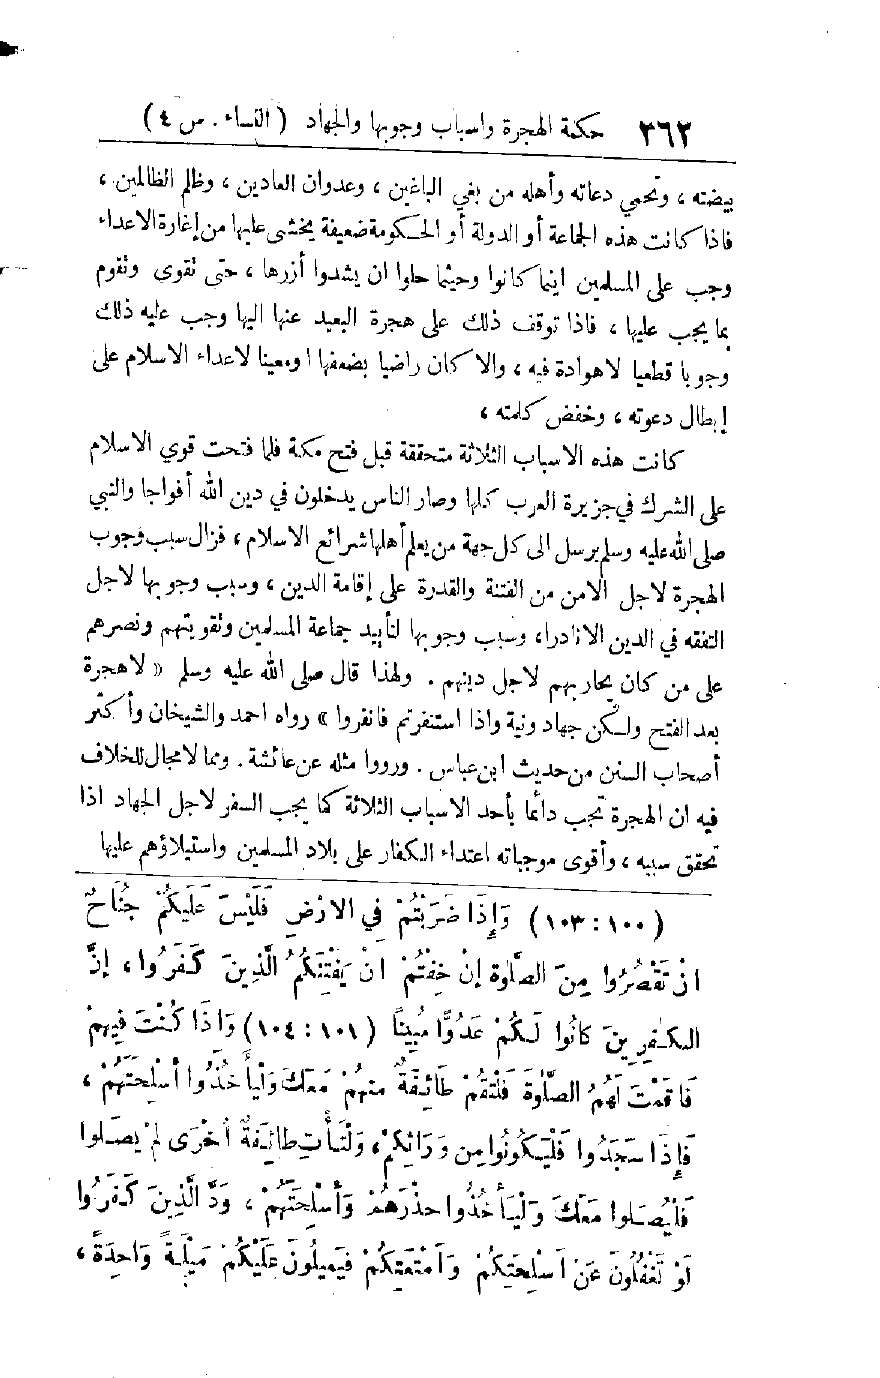 ٣٦٢ حكمة الهجرة واسباب وجوبها والجهاد ( النساء . س ٤ )
بيضته ، وتحمي دعاته وأهله من بغي الباغين ، وعدوان العادين ، وظلم الظالمين ،
فاذا كانت هذه الجماعة أو الدولة أو الحكومة ضعيفة يخشى عليها من إغارة الاعداء
وجب على المسلمين اينما كانوا وحيثما حلوا ان يشدوا أزرها ، حتى تقوى وتقوم
بما يجب عليها ، فاذا توقف ذلك على هجرة البعيد عنها اليها وجب عليه ذلك
وجوبا قطعيا لاهوادة فيه ، والا كان راضيا بضعفها اومعينا لاعداء الاسلام على
إبطال دعوته ، وخفض كلمته ،
كانت هذه الاسباب الثلاثة متحققة قبل فتح مكة فلما فتحت قوي الاسلام
على الشرك في جزيرة العرب كلها وصار الناس يدخلون في دين الله أفواجا والنبي
صلى الله عليه وسلم يرسل الى كل جهة من يعلم أهلها شرائع الاسلام ، فزال سبب وجوب
الهجرة لاجل الامن من الفتنة والقدرة على إقامة الدين ، وسبب وجوبها لاجل
التفقه في الدين الا نادرا، وسبب وجوبها لتأييد جماعة المسلمين وتقويتهم ونصرهم
على من كان يحاربهم لاجل دينهم . ولهذا قال صلى الله عليه وسلم « لاهجرة
بعد الفتح ولكن جهاد ونية واذا استنفرتم فانفروا » رواه احمد والشيخان وأكثر
أصحاب السنن من حديث ابن عباس . ورووا مثله عن عائشة . ومما لامجال للخلاف
فيه ان الهجرة تجب دائما بأحد الاسباب الثلاثة كما يجب السفر لاجل الجهاد اذا
تحقق سببه ، وأقوى موجباته اعتداء الكفار على بلاد المسلمين واستيلاؤهم عليها
(١٠٠ : ١٠٣) وَإِذَا ضَرَبْتُمْ فِي الارْضِ فَلَيْسَ عَلَيْكُمْ جُنَاحٌ
انْ تَقْصُرُوا مِنَ الصَّلٰوة إنْ خِفْتُمْ انْ يَفْتِنَكُمُ الَّذِينَ كَفَرُوا ، إنَّ
الكٰفِرِينَ كانُوا لَكُمْ عَدُوًّا مُبِيناً (١٠١ : ١٠٤) وَاذَا كُنْتَ فِيهِمْ
فَاقَمْتَ لَهُمُ الصَّلٰوةَ فَلْتَقُمْ طَائِفَةٌ مِنْهُمْ مَعَكَ وَلْيَأْخُذُوا أسْلِحَتَهُمْ ،
فَإِذَا سَجَدُوا فَلْيَكُونُوا مِن وَرَائِكُمْ، وَلْتَأْتِ طَائِفَةٌ أخْرَى لمْ يُصَلوا
فَلْيُصَلوا مَعَكَ وَلْيَأْخُذُوا حذْرَهُمْ وَأسْلِحَتَهُمْ ، وَدَّ الَّذِينَ كَفَرُوا
لَوْ تَغْفُلُونَ عَنْ اسْلِحَتِكُمْ وَامْتِعَتِكُمْ فَيَمِيلُونَ عَلَيْكُمْ مَيْلَةً وَاحِدَةً ،